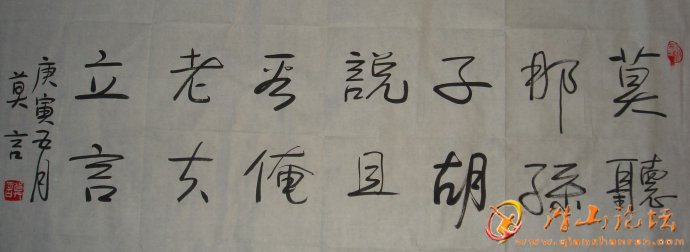 莫聽
那孫
子胡
說且
看俺
老夫
立言
庚寅五月
莫言
潜山论坛